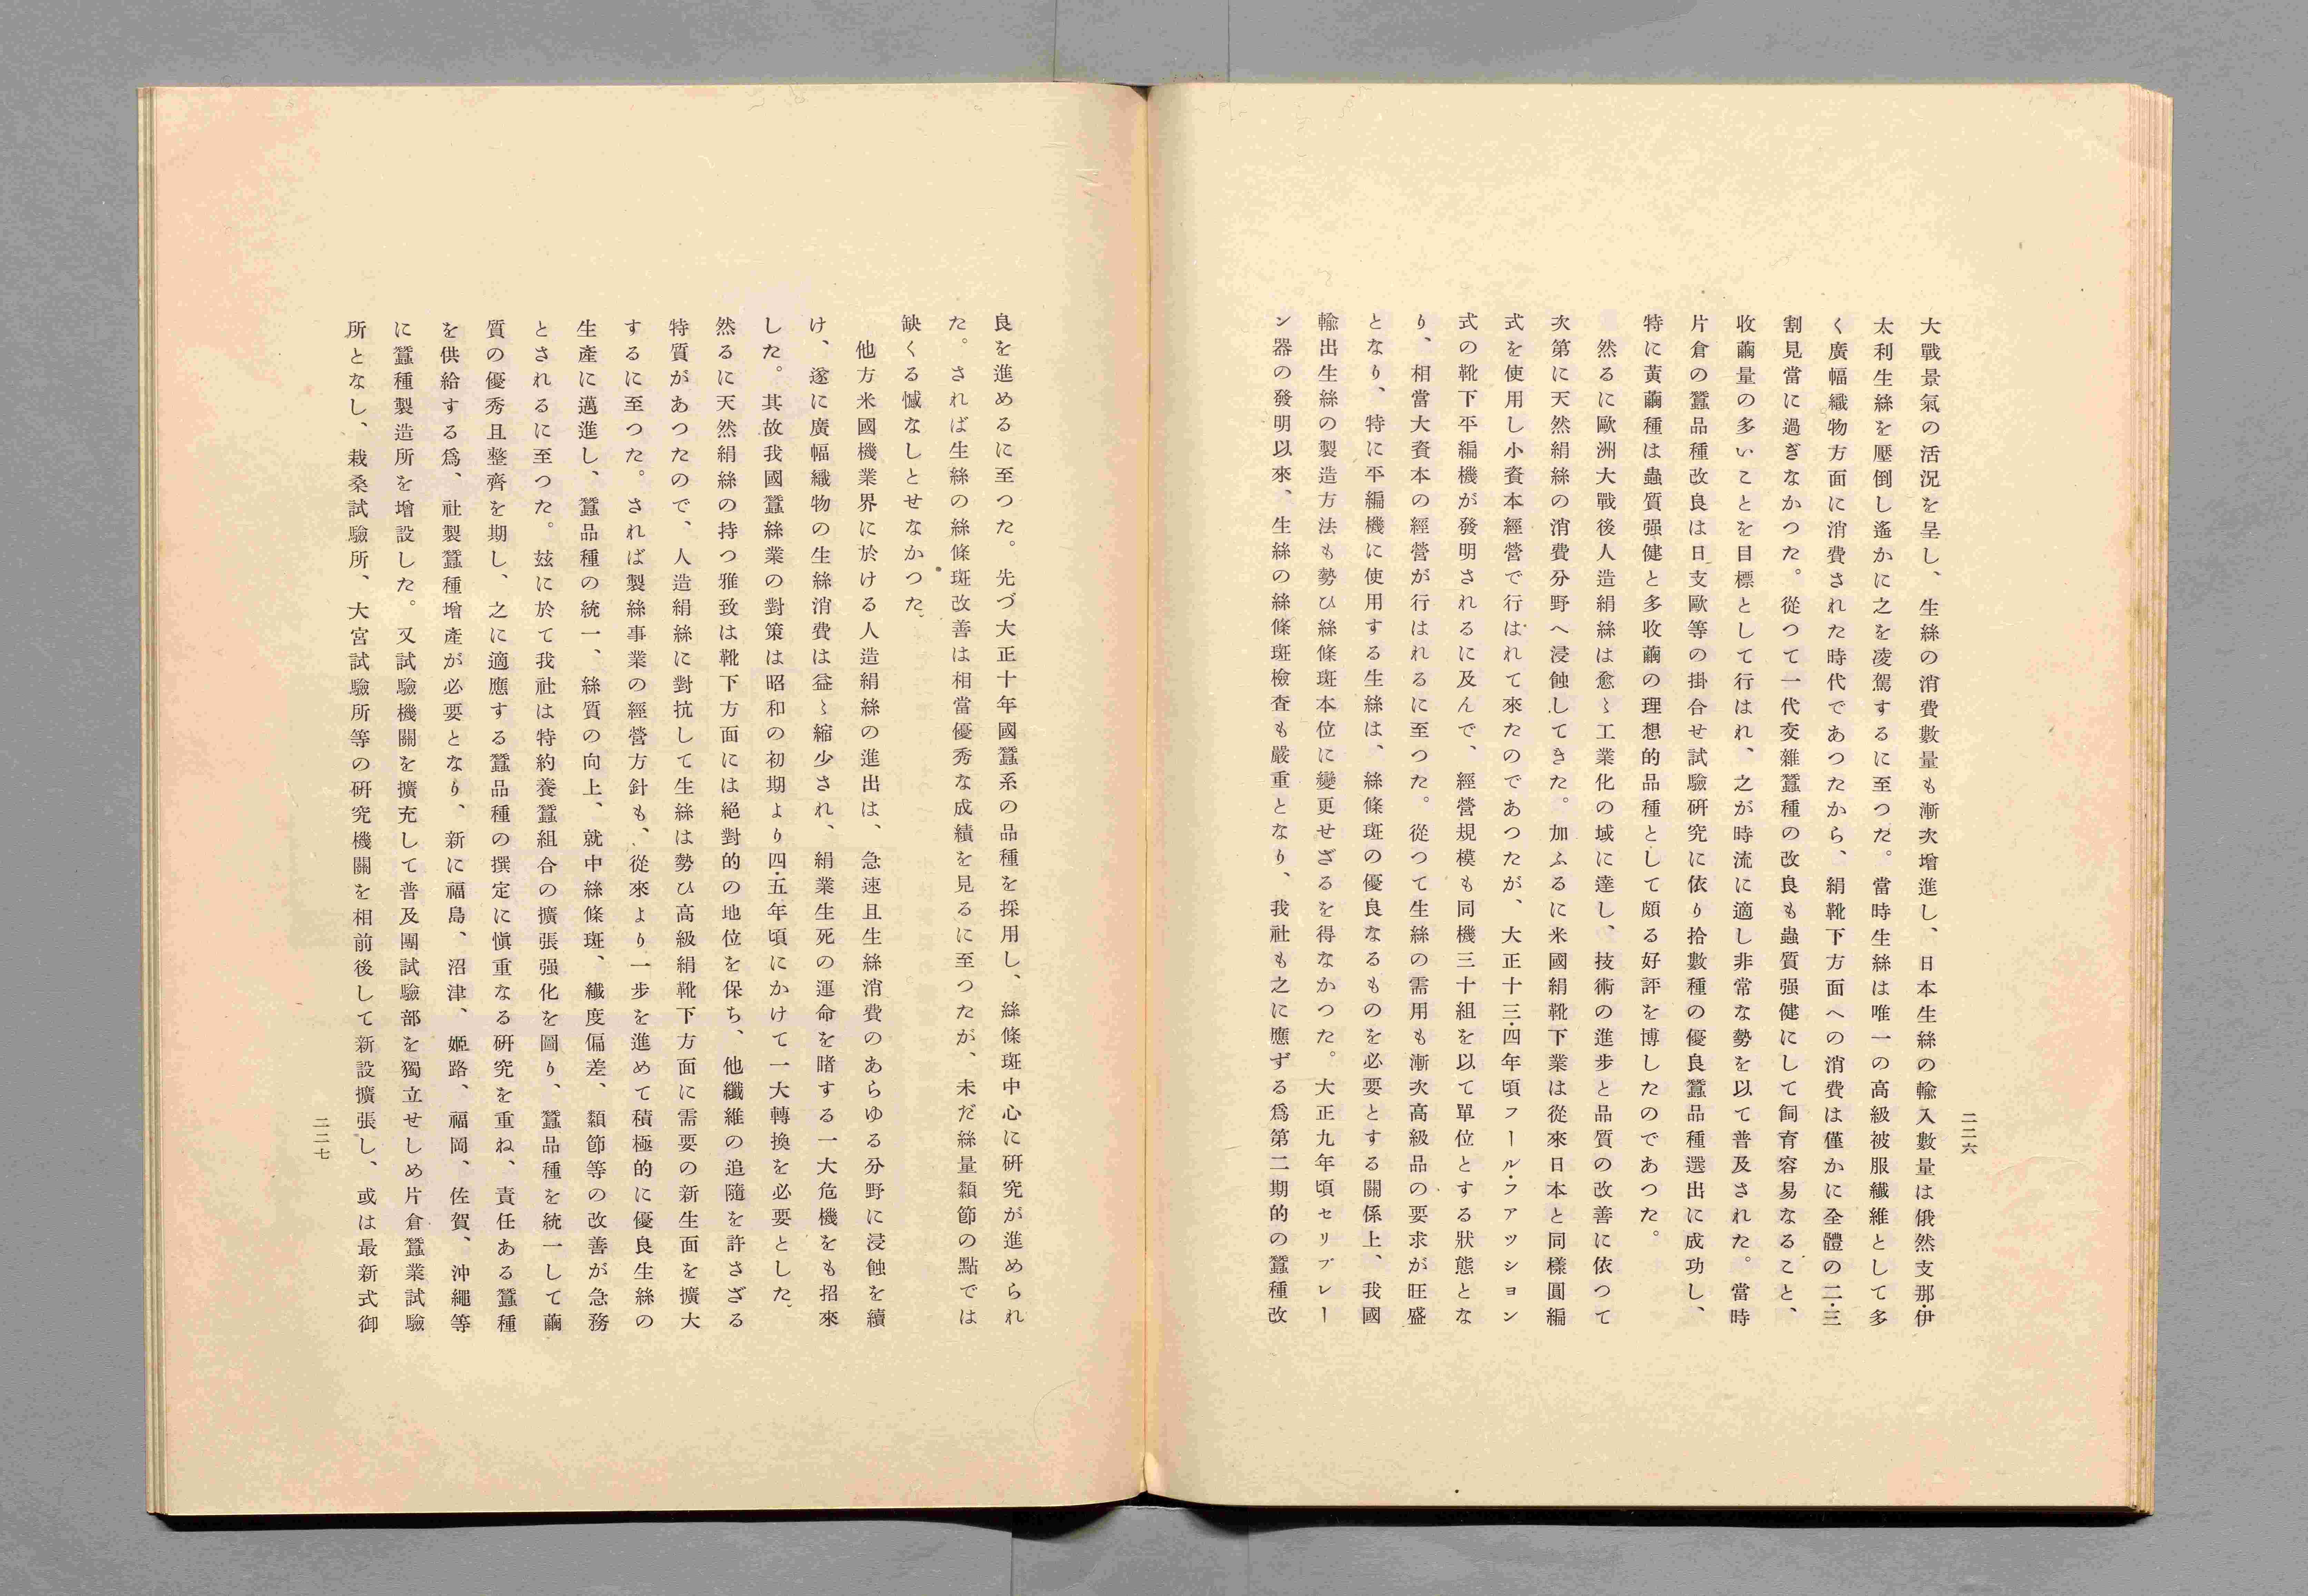 二二六
大戰景氣の活況を呈し、生絲の消費數量も漸次增進し、日本生絲の輸入數量は俄然支那・伊
太利生絲を壓倒し遙かに之を凌駕するに至つた。當時生絲は唯一の高級被服纎維として多
く廣幅織物方面に消費された時代であつたから、絹靴下方面への消費は僅かに全體の二・三
割見當に過ぎなかつた。從つて一代交雜蠶種の改良も蟲質强健にして飼育容易なること、
收繭量の多いことを目標として行はれ、之が時流に適し非常な勢を以て普及された。當時
片倉の蠶品種改良は日支歐等の掛合せ試驗硏究に依り拾數種の優良蠶品種選出に成功し、
特に黃繭種は蟲質强健と多收繭の理想的品種として頗る好評を博したのであつた。
然るに歐洲大戰後人造絹絲は愈〻工業化の域に達し、技術の進步と品質の改善に依つて
次第に天然絹絲の消費分野へ浸蝕してきた。加ふるに米國絹靴下業は從來日本と同樣圓編
式を使用し小資本經營で行はれて來たのであつたが、大正十三・四年頃フール・フアツシヨン
式の靴下平編機が發明されるに及んで、經營規模も同機三十組を以て單位とする狀態とな
り、相當大資本の經營が行はれるに至つた。從つて生絲の需用も漸次高級品の要求が旺盛
となり、特に平編機に使用する生絲は、絲條斑の優良なるものを必要とする關係上、我國
輸出生絲の製造方法も勢ひ絲條斑本位に變更せざるを得なかつた。大正九年頃セリプレー
ン器の發明以來、生絲の絲條斑檢査も嚴重となり、我社も之に應ずる爲第二期的の蠶種改
良を進めるに至つた。先づ大正十年國蠶系の品種を採用し、絲條斑中心に硏究が進められ
た。されば生絲の絲條斑改善は相當優秀な成績を見るに至つたが、未だ絲量纇節の點では
缺くる憾なしとせなかつた。
他方米國機業界に於ける人造絹絲の進出は、急速且生絲消費のあらゆる分野に浸蝕を續
け、遂に廣幅織物の生絲消費は益〻縮少され、絹業生死の運命を賭する一大危機をも招來
した。其故我國蠶絲業の對策は昭和の初期より四・五年頃にかけて一大轉換を必要とした。
然るに天然絹絲の持つ雅致は靴下方面には絕對的の地位を保ち、他纖維の追隨を許さざる
特質があつたので、人造絹絲に對抗して生絲は勢ひ高級絹靴下方面に需要の新生面を擴大
するに至つた。されば製絲事業の經營方針も、從來より一步を進めて積極的に優良生絲の
生產に邁進し、蠶品種の統一、絲質の向上、就中絲條斑、纎度偏差、纇節等の改善が急務
とされるに至つた。玆に於て我社は特約養蠶組合の擴張强化を圖り、蠶品種を統一して繭
質の優秀且整齊を期し、之に適應する蠶品種の撰定に愼重なる硏究を重ね、責任ある蠶種
を供給する爲、社製蠶種增產が必要となり、新に福島、沼津、姬路、福岡、佐賀、沖繩等
に蠶種製造所を增設した。又試驗機關を擴充して普及團試驗部を獨立せしめ片倉蠶業試驗
所となし、栽桑試驗所、大宮試驗所等の硏究機關を相前後して新設擴張し、或は最新式御
二二七